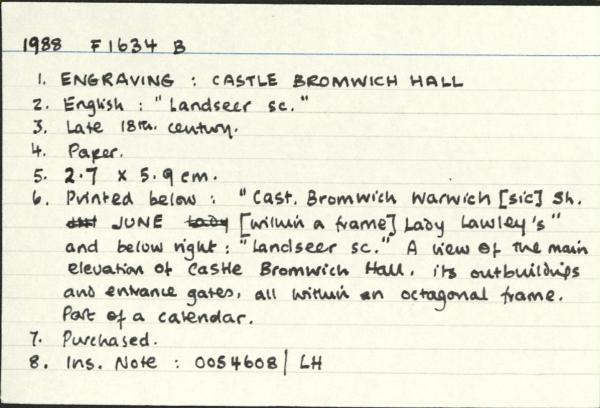 1988 F1634 B
1. ENGRAVING : CASTLE BROMWICH HALL
2. English : "Landseer sc."
3. Late 18th. century.
4. Paper.
5. 2.7 x 5.9 cm.
6. Printed below : "Cast. Bromwich Warwich [sic] Sh.
JUNE Lady [within a frame] Lady Lawley's"
and below right : "Landseer sc." A view of the main
elevation of Castle Bromwich Hall, its outbuildings
and entrance gates, all within an octagonal frame.
Part of a calendar.
7. Purchased.
8. Ins. Note : 0054608 | LH